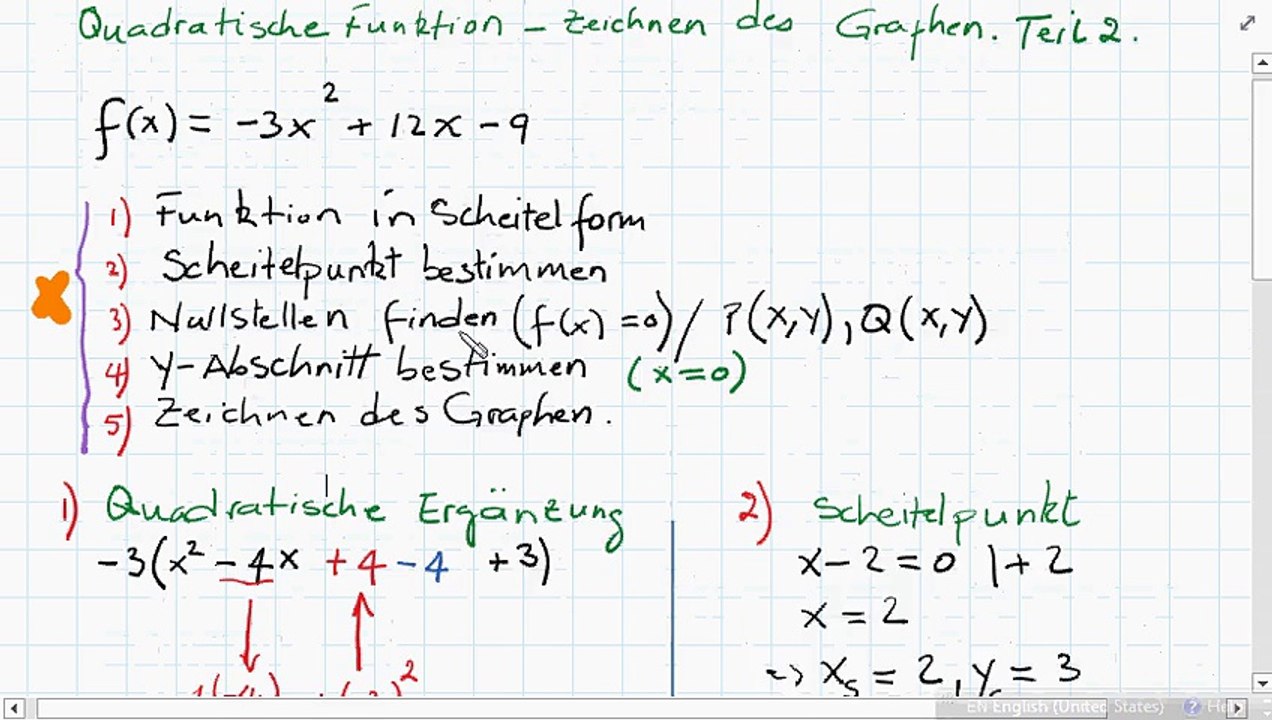 Quadratische Funktion – Zeichnen des Graphen. Teil 2.
f(x) = -3x² + 12x - 9
1) Funktion in Scheitelform
2) Scheitelpunkt bestimmen
3) Nullstellen finden (f(x) = 0) / P(x,y), Q(x,y)
4) Y-Abschnitt bestimmen (x=0)
5) Zeichnen des Graphen.
1) Quadratische Ergänzung
-3(x² - 4x + 4 - 4 + 3)
2) Scheitelpunkt
x - 2 = 0 | + 2
x = 2
=> xₛ = 2, yₛ = 3
EN English (United States)